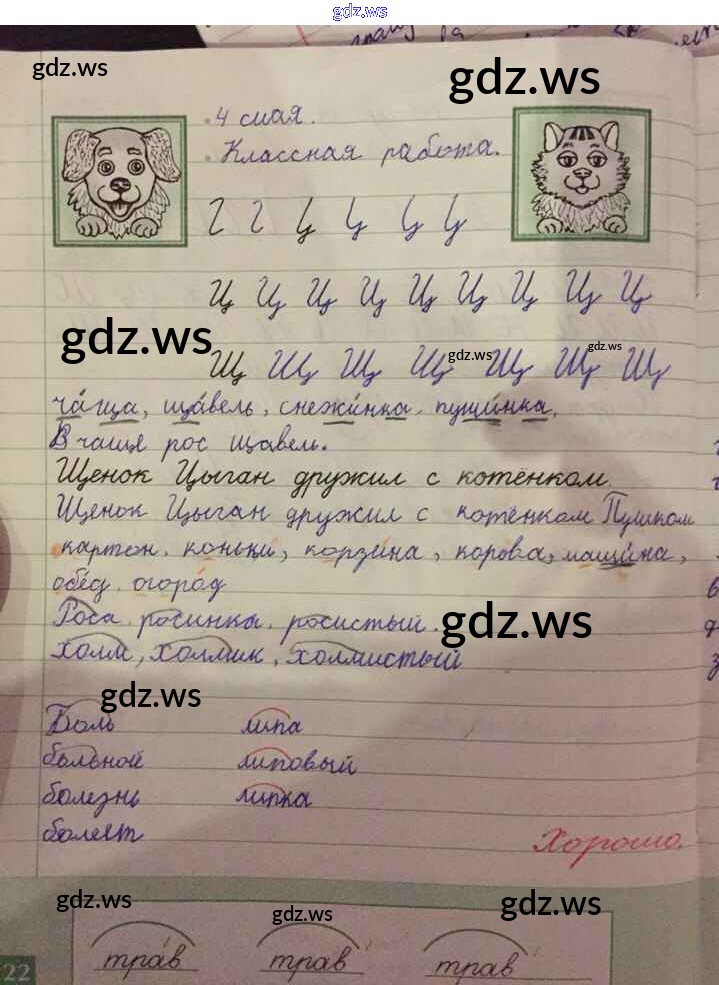 gdz.ws
gdz.ws
gdz.ws
4 мая.
Классная работа.
Г Г Ц Ц Ц Ц
Ц Ц Ц Ц Ц Ц Ц Ц Ц
gdz.ws
gdz.ws
gdz.ws
Щ Щ Щ Щ Щ Щ Щ
ча́ща, ща́вель, снежи́нка, пуши́нка.
В чаще рос щавель.
Щенок Цыган дружил с котёнком.
Щенок Цыган дружил с котёнком Пушком
картон, коньки, корзина, корова, машина,
обед, огород
Роса, росинка, росистый.
gdz.ws
холм, холмик, холмистый
gdz.ws
Боль липа
больной липовый
болезнь липка
болеет
Хорошо.
gdz.ws
gdz.ws
gdz.ws
трав трав трав
22